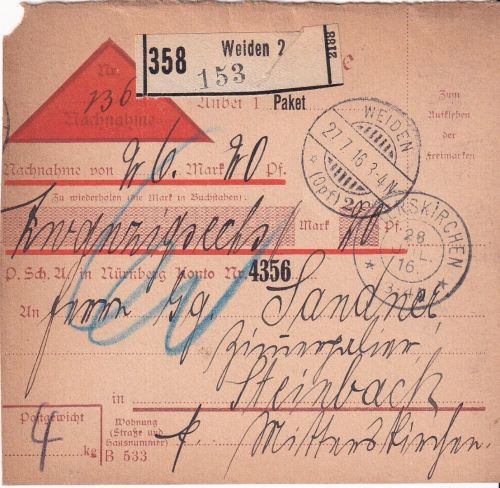 Weiden 2
358
153
8812
Nr. 136
Nachnahme
Anbei 1 Paket
Zum
Aufkleben
der
Freimarken
WEIDEN
27.7.16.3-4N.
* (Opf) 2 *
Nachnahme von 26 Mark 20 Pf.
Zu wiederholen (die Mark in Buchstaben)
Zwanzigsechs Mark 20 Pf.
RSKIRCHEN
28
JUL.
16.
P. Sch. A. in Nürnberg Konto Nr. 4356
An Herrn Gg. Sandner
Zimmerpalier,
in Steinbach
Postgewicht
4 kg
Wohnung
(Straße und
Hausnummer)
B 533
P. Mitterskirchen.